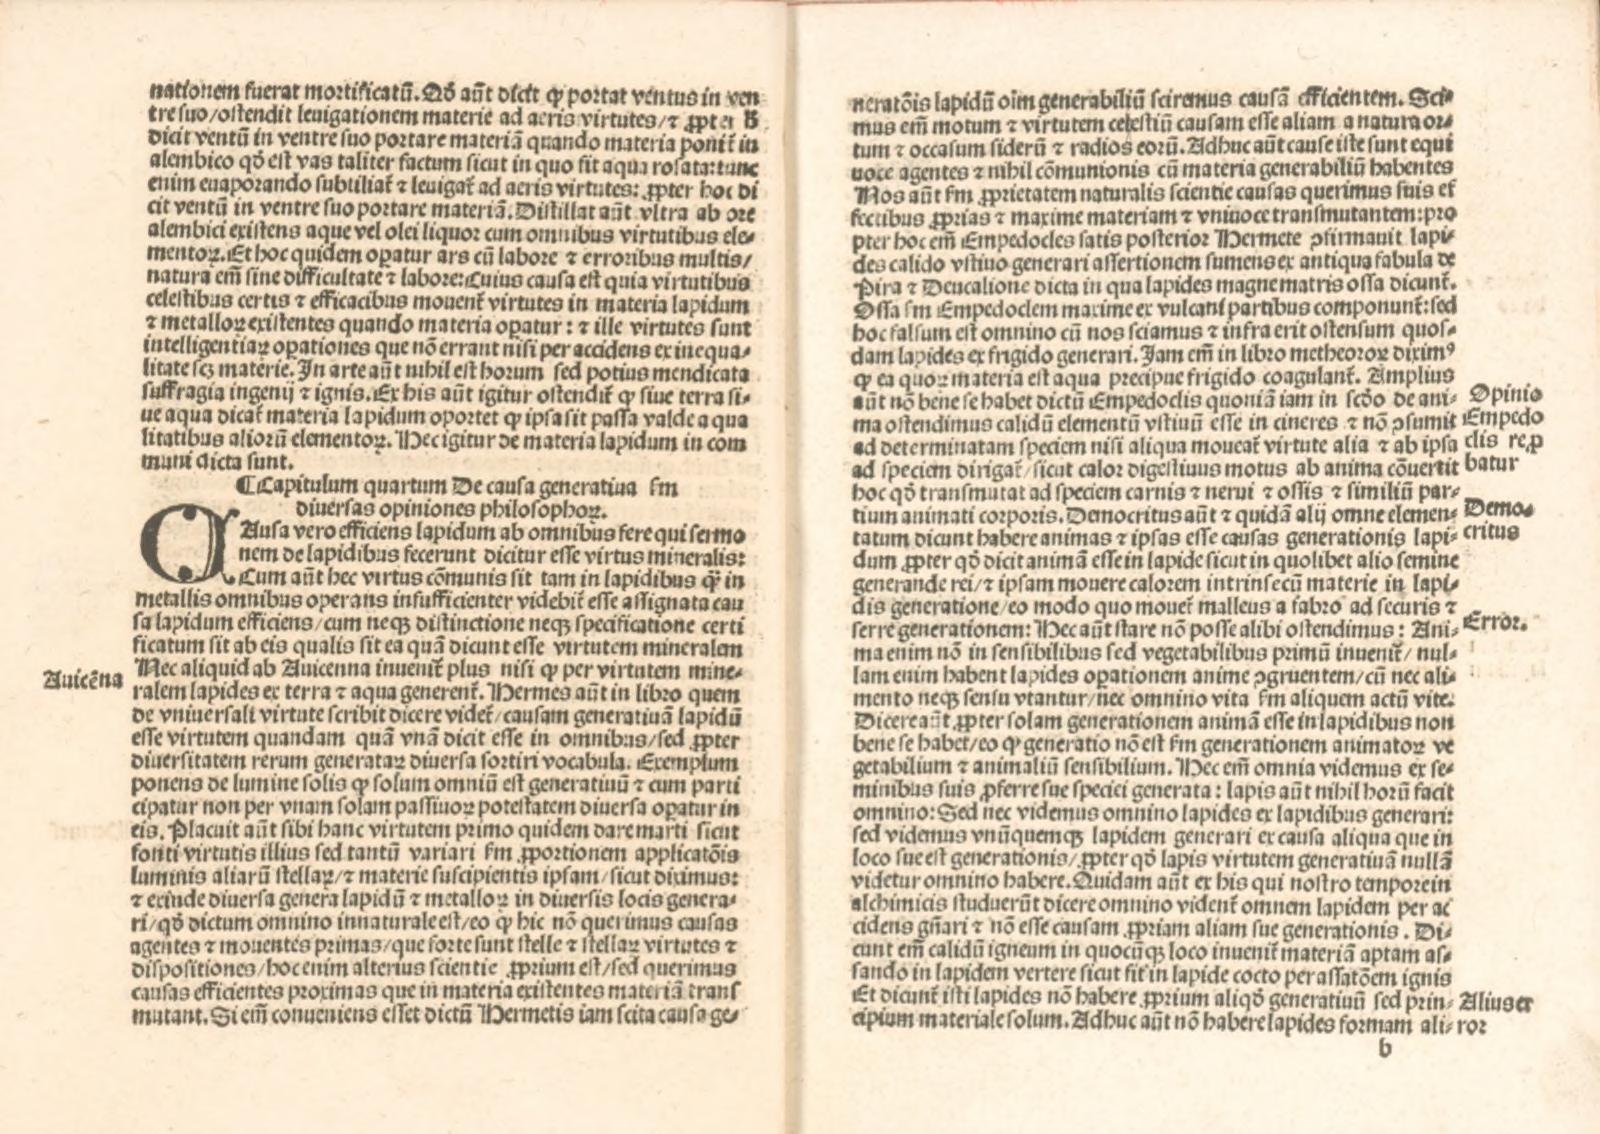 nationem fuerat mortificatū. Qḋ aūt dicit ꝙ portat ventus in ven
tre suo/ostendit leuigationem materie ad aeris virtutes/⁊ ꝓpter
dicit ventū in ventre suo portare materiā quando materia ponit̄ in
alembico qḋ est vas taliter factum sicut in quo fit aqua rosata: tunc
enim euaporando subtiliat̄ ⁊ leuigat̄ ad aeris virtutes: ꝓpter hoc di
cit ventū in ventre suo portare materiā. Distillat aūt vltra ab ore
alembici existens aque vel olei liquor cum omnibus virtutibus ele⸗
mentoꝝ. Et hoc quidem oꝑatur ars cū labore ⁊ erroribus multis/
natura em̄ sine difficultate ⁊ labore: Cuius causa est quia virtutibus
celestibus certis ⁊ efficacibus mouent̄ virtutes in materia lapidum
⁊ metalloꝝ existentes quando materia oꝑatur: ⁊ ille virtutes sunt
intelligentiaꝝ oꝑationes que nō errant nisi per accidens ex inequa⸗
litate scꝫ materie. In arte aūt nihil est horum sed potius mendicata
suffragia ingenij ⁊ ignis. Ex his aūt igitur ostendit̄ ꝙ siue terra si⸗
ue aqua dicat̄ materia lapidum oportet ꝙ ipsa sit passa valde a qua
litatibus aliorū elementoꝝ. Hec igitur de materia lapidum in com
muni dicta sunt.
¶ Capitulum quartum De causa generatiua fm
diuersas opiniones philosophoꝝ.
CAusa vero efficiens lapidum ab omnibus fere qui sermo
nem de lapidibus fecerunt dicitur esse virtus mineralis:
Cum aūt hec virtus cōmunis sit tam in lapidibus ꝙ̄ in
metallis omnibus operans insufficienter videbit̄ esse assignata cau
sa lapidum efficiens/cum neqꝫ distinctione neqꝫ specificatione certi
ficatum sit ab eis qualis sit ea quā dicunt esse virtutem mineralem
Nec aliquid ab Auicenna inuenit̄ plus nisi ꝙ per virtutem mine⸗
Auicēna
ralem lapides ex terra ⁊ aqua generent̄. Hermes aūt in libro quem
de vniuersali virtute scribit dicere videt̄/causam generatiuā lapidū
esse virtutem quandam quā vnā dicit esse in omnibus/sed ꝓpter
diuersitatem rerum generataꝝ diuersa sortiri vocabula. Exemplum
ponens de lumine solis ꝙ solum omniū est generatiuū ⁊ cum parti
cipatur non per vnam solam passiuoꝝ potestatem diuersa oꝑatur in
eis. Placuit aūt sibi hanc virtutem primo quidem dare marti sicut
fonti virtutis illius sed tantū variari fm ꝓportionem applicatōis
luminis aliarū stellaꝝ/⁊ materie suscipientis ipsam/sicut diximus:
⁊ exinde diuersa genera lapidū ⁊ metalloꝝ in diuersis locis genera⸗
ri/qḋ dictum omnino innaturale est/eo ꝙ hic nō querimus causas
agentes ⁊ mouentes primas/que forte sunt stelle ⁊ stellaꝝ virtutes ⁊
dispositiones/hoc enim alterius scientie ꝓprium est/sed querimus
causas efficientes proximas que in materia existentes materiā trans
mutant. Si em̄ conueniens esset dictū Hermetis iam scita causa ge⸗
neratōis lapidū oīm generabiliū sciremus causā efficientem. Sci⸗
mus em̄ motum ⁊ virtutem celestiū causam esse aliam a natura or⸗
tum ⁊ occasum siderū ⁊ radios eorū. Adhuc aūt cause iste sunt equi
uoce agentes ⁊ nihil cōmunionis cū materia generabiliū habentes
Nos aūt fm ꝓprietatem naturalis scientie causas querimus suis ef
fectibus ꝓprias ⁊ maxime materiam ⁊ vniuoce transmutantem: pro
pter hoc em̄ Empedocles satis posterior Hermete ꝯfirmauit lapi⸗
des calido vstiuo generari assertionem sumens ex antiqua fabula de
Pira ⁊ Deucalione dicta in qua lapides magne matris ossa dicunt̄.
Ossa fm Empedoclem maxime ex vulcani partibus componunt̄: sed
hoc falsum est omnino cū nos sciamus ⁊ infra erit ostensum quos⸗
dam lapides ex frigido generari. Iam em̄ in libro metheoroꝝ diximꝰ
ꝙ ea quoꝝ materia est aqua precipue frigido coagulant̄. Amplius
aūt nō bene se habet dictū Empedoclis quoniā iam in scḋo de ani⸗
ma ostendimus calidū elementū vstiuū esse in cineres ⁊ nō ꝯsumit
ad determinatam speciem nisi aliqua moueat̄ virtute alia ⁊ ab ipsa
ad speciem dirigat̄/sicut calor digestiuus motus ab anima cōuertit
Opinio
Empedo
clis reꝓ
batur
hoc qḋ transmutat ad speciem carnis ⁊ nerui ⁊ ossis ⁊ similiū par⸗
tium animati corporis. Democritus aūt ⁊ quidā alij omne elemen⸗
tatum dicunt habere animas ⁊ ipsas esse causas generationis lapi⸗
Demo⸗
critus
dum ꝓpter qḋ dicit animā esse in lapide sicut in quolibet alio semine
generande rei/⁊ ipsam mouere calorem intrinsecū materie in lapi⸗
dis generatione/eo modo quo mouet̄ malleus a fabro ad securis ⁊
serre generationem: Hec aūt stare nō posse alibi ostendimus: Ani⸗
Error.
ma enim nō in sensibilibus sed vegetabilibus primū inuenit̄/nul⸗
lam enim habent lapides oꝑationem anime ꝯgruentem/cū nec ali⸗
mento neqꝫ sensu vtantur/nec omnino vita fm aliquem actū vite.
Dicere aūt ꝓpter solam generationem animā esse in lapidibus non
bene se habet/eo ꝙ generatio nō est fm generationem animatoꝝ ve
getabilium ⁊ animaliū sensibilium. Hec em̄ omnia videmus ex se⸗
minibus suis ꝓferre sue speciei generata: lapis aūt nihil horū facit
omnino: Sed nec videmus omnino lapides ex lapidibus generari:
sed videmus vnūquemqꝫ lapidem generari ex causa aliqua que in
loco sue est generationis/ꝓpter qḋ lapis virtutem generatiuā nullā
videtur omnino habere. Quidam aūt ex his qui nostro tempore in
alchimicis studuerūt dicere omnino vident̄ omnem lapidem per ac
cidens gn̄ari ⁊ nō esse causam ꝓpriam aliam sue generationis. Di⸗
cunt em̄ calidū igneum in quocūqꝫ loco inuenit̄ materiā aptam as⸗
sando in lapidem vertere sicut fit̄ in lapide cocto per assatōem ignis
Et dicunt isti lapides nō habere ꝓprium aliqḋ generatiuū sed prin⸗
cipium materiale solum. Adhuc aūt nō habere lapides formam ali⸗
Alius er
ror
b